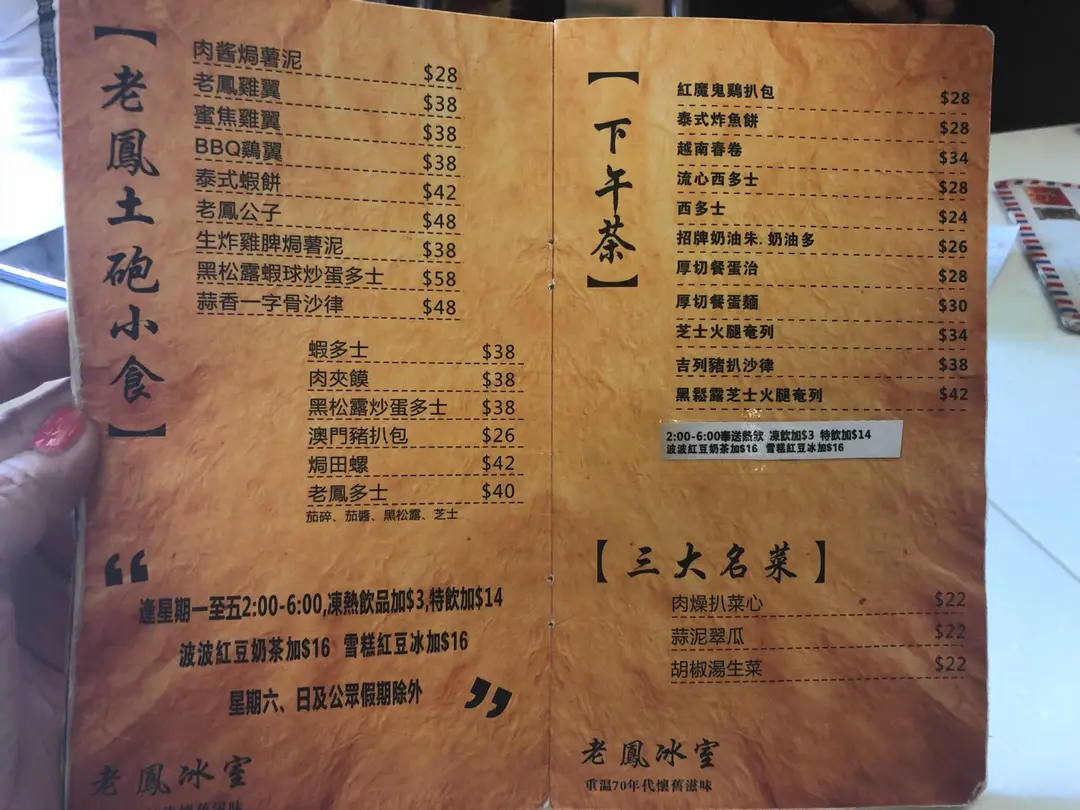 【老鳳土砲小食】
肉酱焗薯泥 $28
老鳳雞翼 $38
蜜焦雞翼 $38
BBQ鷄翼 $38
泰式蝦餅 $42
老鳳公子 $48
生炸雞脾焗薯泥 $38
黑松露蝦球炒蛋多士 $58
蒜香一字骨沙律 $48
蝦多士 $38
肉夾饃 $38
黑松露炒蛋多士 $38
澳門豬扒包 $26
焗田螺 $42
老鳳多士 $40
茄碎、茄醬、黑松露、芝士
“逢星期一至五2:00-6:00,凍熱飲品加$3,特飲加$14
波波紅豆奶茶加$16 雪糕紅豆冰加$16
星期六、日及公眾假期除外”
老鳳冰室
70年代懷舊滋味
【下午茶】
紅魔鬼鷄扒包 $28
泰式炸魚餅 $28
越南春卷 $34
流心西多士 $28
西多士 $24
招牌奶油朱.奶油多 $26
厚切餐蛋治 $28
厚切餐蛋麵 $30
芝士火腿奄列 $34
吉列豬扒沙律 $38
黑鬆露芝士火腿奄列 $42
2:00-6:00奉送熱飲 凍飲加$3 特飲加$14
波波紅豆奶茶加$16 雪糕紅豆冰加$16
【三大名菜】
肉燥扒菜心 $22
蒜泥翠瓜 $22
胡椒湯生菜 $22
老鳳冰室
重温70年代懷舊滋味